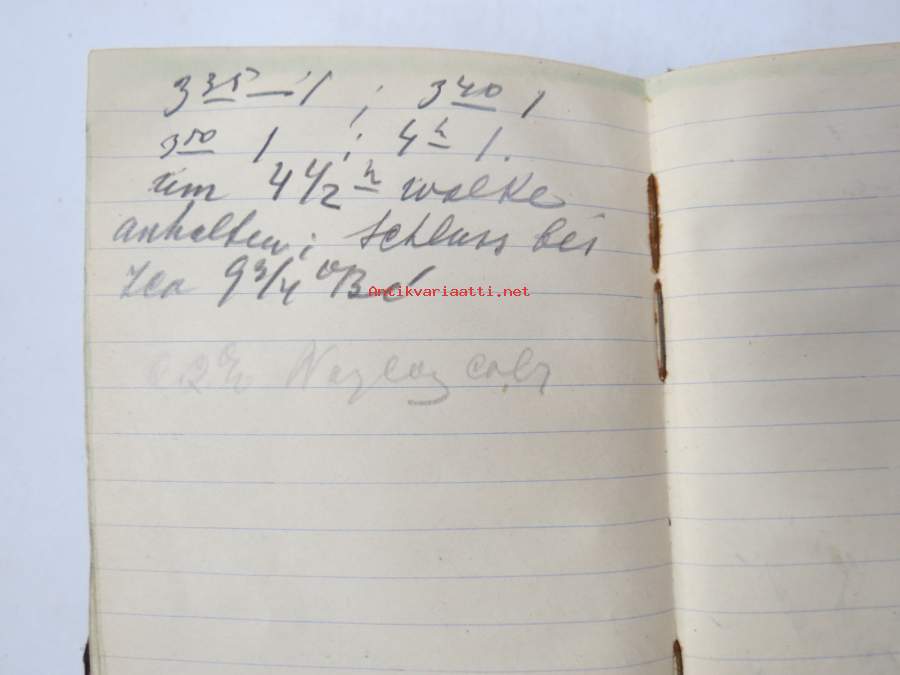 3 35 — 1 ; 3 40 1
3 50 1 ; 4 h 1.
um 4 1/2 h walke
anhalten; Schluss bei
zca 9 3/4 °Bé
Antikvariaatti.net